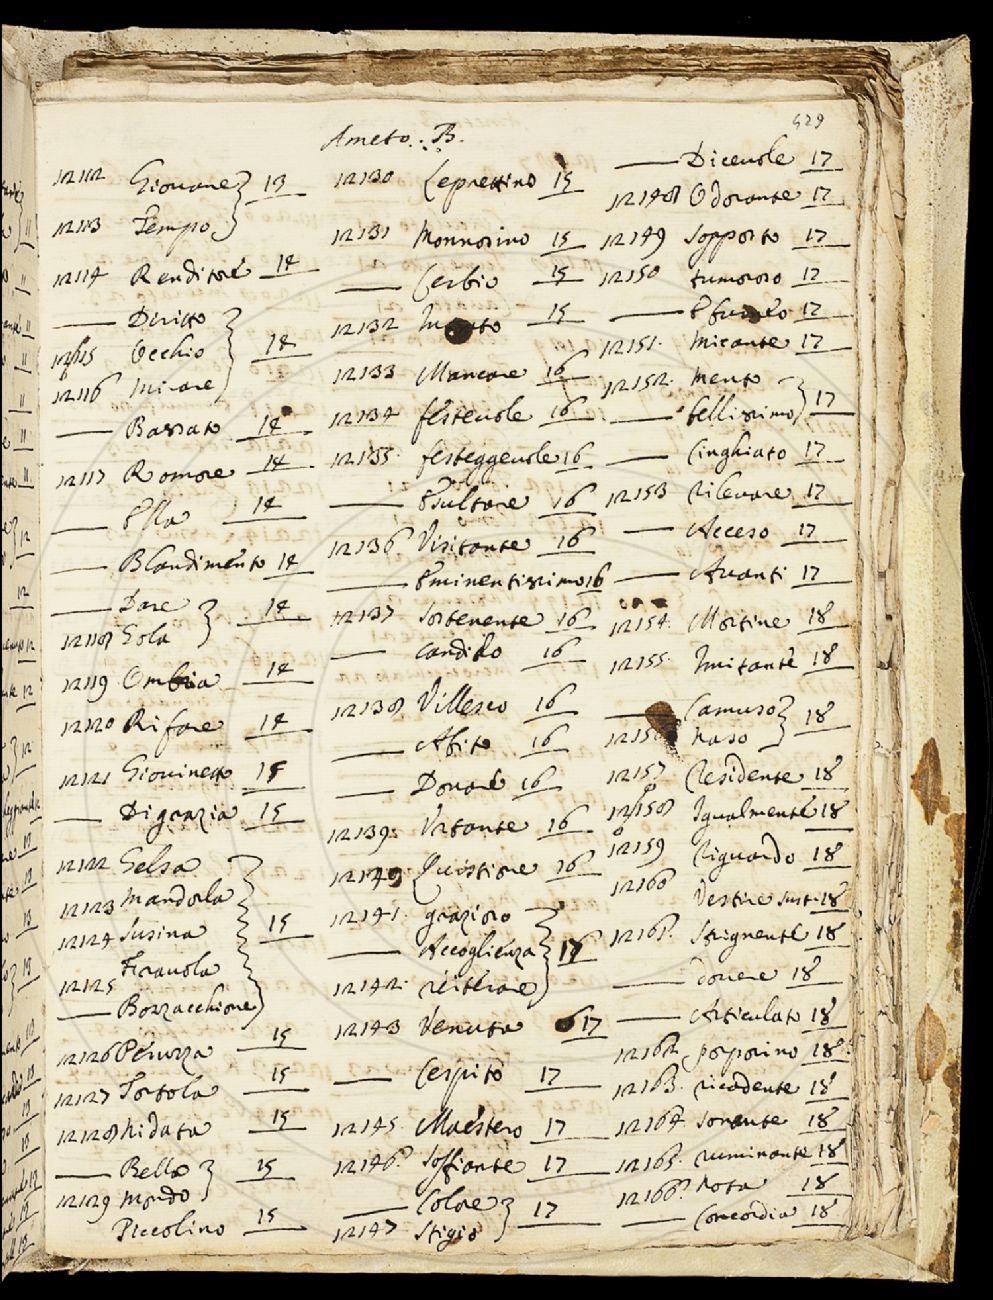 529
Ameto. B.
12112 Giovane 13
12113 Tempo
12114 Renditore 14
—— Diritto
12115 Occhio 14
12116 Mirare
—— Bassato 14
12117 Romore 14
—— Ella 14
—— Blandimento 14
—— Dare 14
12118 Gola
12119 Ombra 14
12120 Rifare 14
12121 Giovinetto 15
—— Di grazia 15
12122 Gelsa
12123 Mandorla
12124 Susina 15
Fravola
12125
—— Bozzacchione
12126 Peruzza 15
12127 Tortola 15
12128 Nidata 15
—— Bello 15
12129 Mondo
Piccolino 15
12130 Leprettino 15
12131 Monnosino 15
—— Cerbio 15
12132 15
12133 Mancare 16
12134 festevole 16
12135. festeggevole 16
—— Esultare 16
12136. Visitante 16
—— Eminentissimo 16
12137 Sostenente 16
—— Candido 16
12138 Villesco 16
—— Abito 16
—— Donare 16
12139. Vrtante 16
12140 Quistione 16
12141. grazioso
—— Accoglienza 16
12142. reiterare
12143 Venuta 17
—— Cespito 17
12145 Maestero 17
12146. Soffiante 17
—— Colore 17
12147 Stigio
—— Dicevole 17
12148 Odorante 17
12149 Sopporto 17
12150 tumoroso 17
—— 17
12151. Micante 17
12152. Mento 17
—— bellissimo
—— Cinghiato 17
12153 Rilevare 17
—— Acceso 17
—— Avanti 17
12154. Mortine 18
12155. Imitante 18
—— Camuso 18
Naso
12157 Residente 18
12158 Igualmente 18
12159 Riguardo 18
12160 Vestire sust. 18
12161. Strignente 18
—— 18
—— Articulato 18
12162. porporino 18
12163. ricadente 18
12164 Sonante 18
12165. ruminante 18
12166. Nota 18
—— Concordia 18